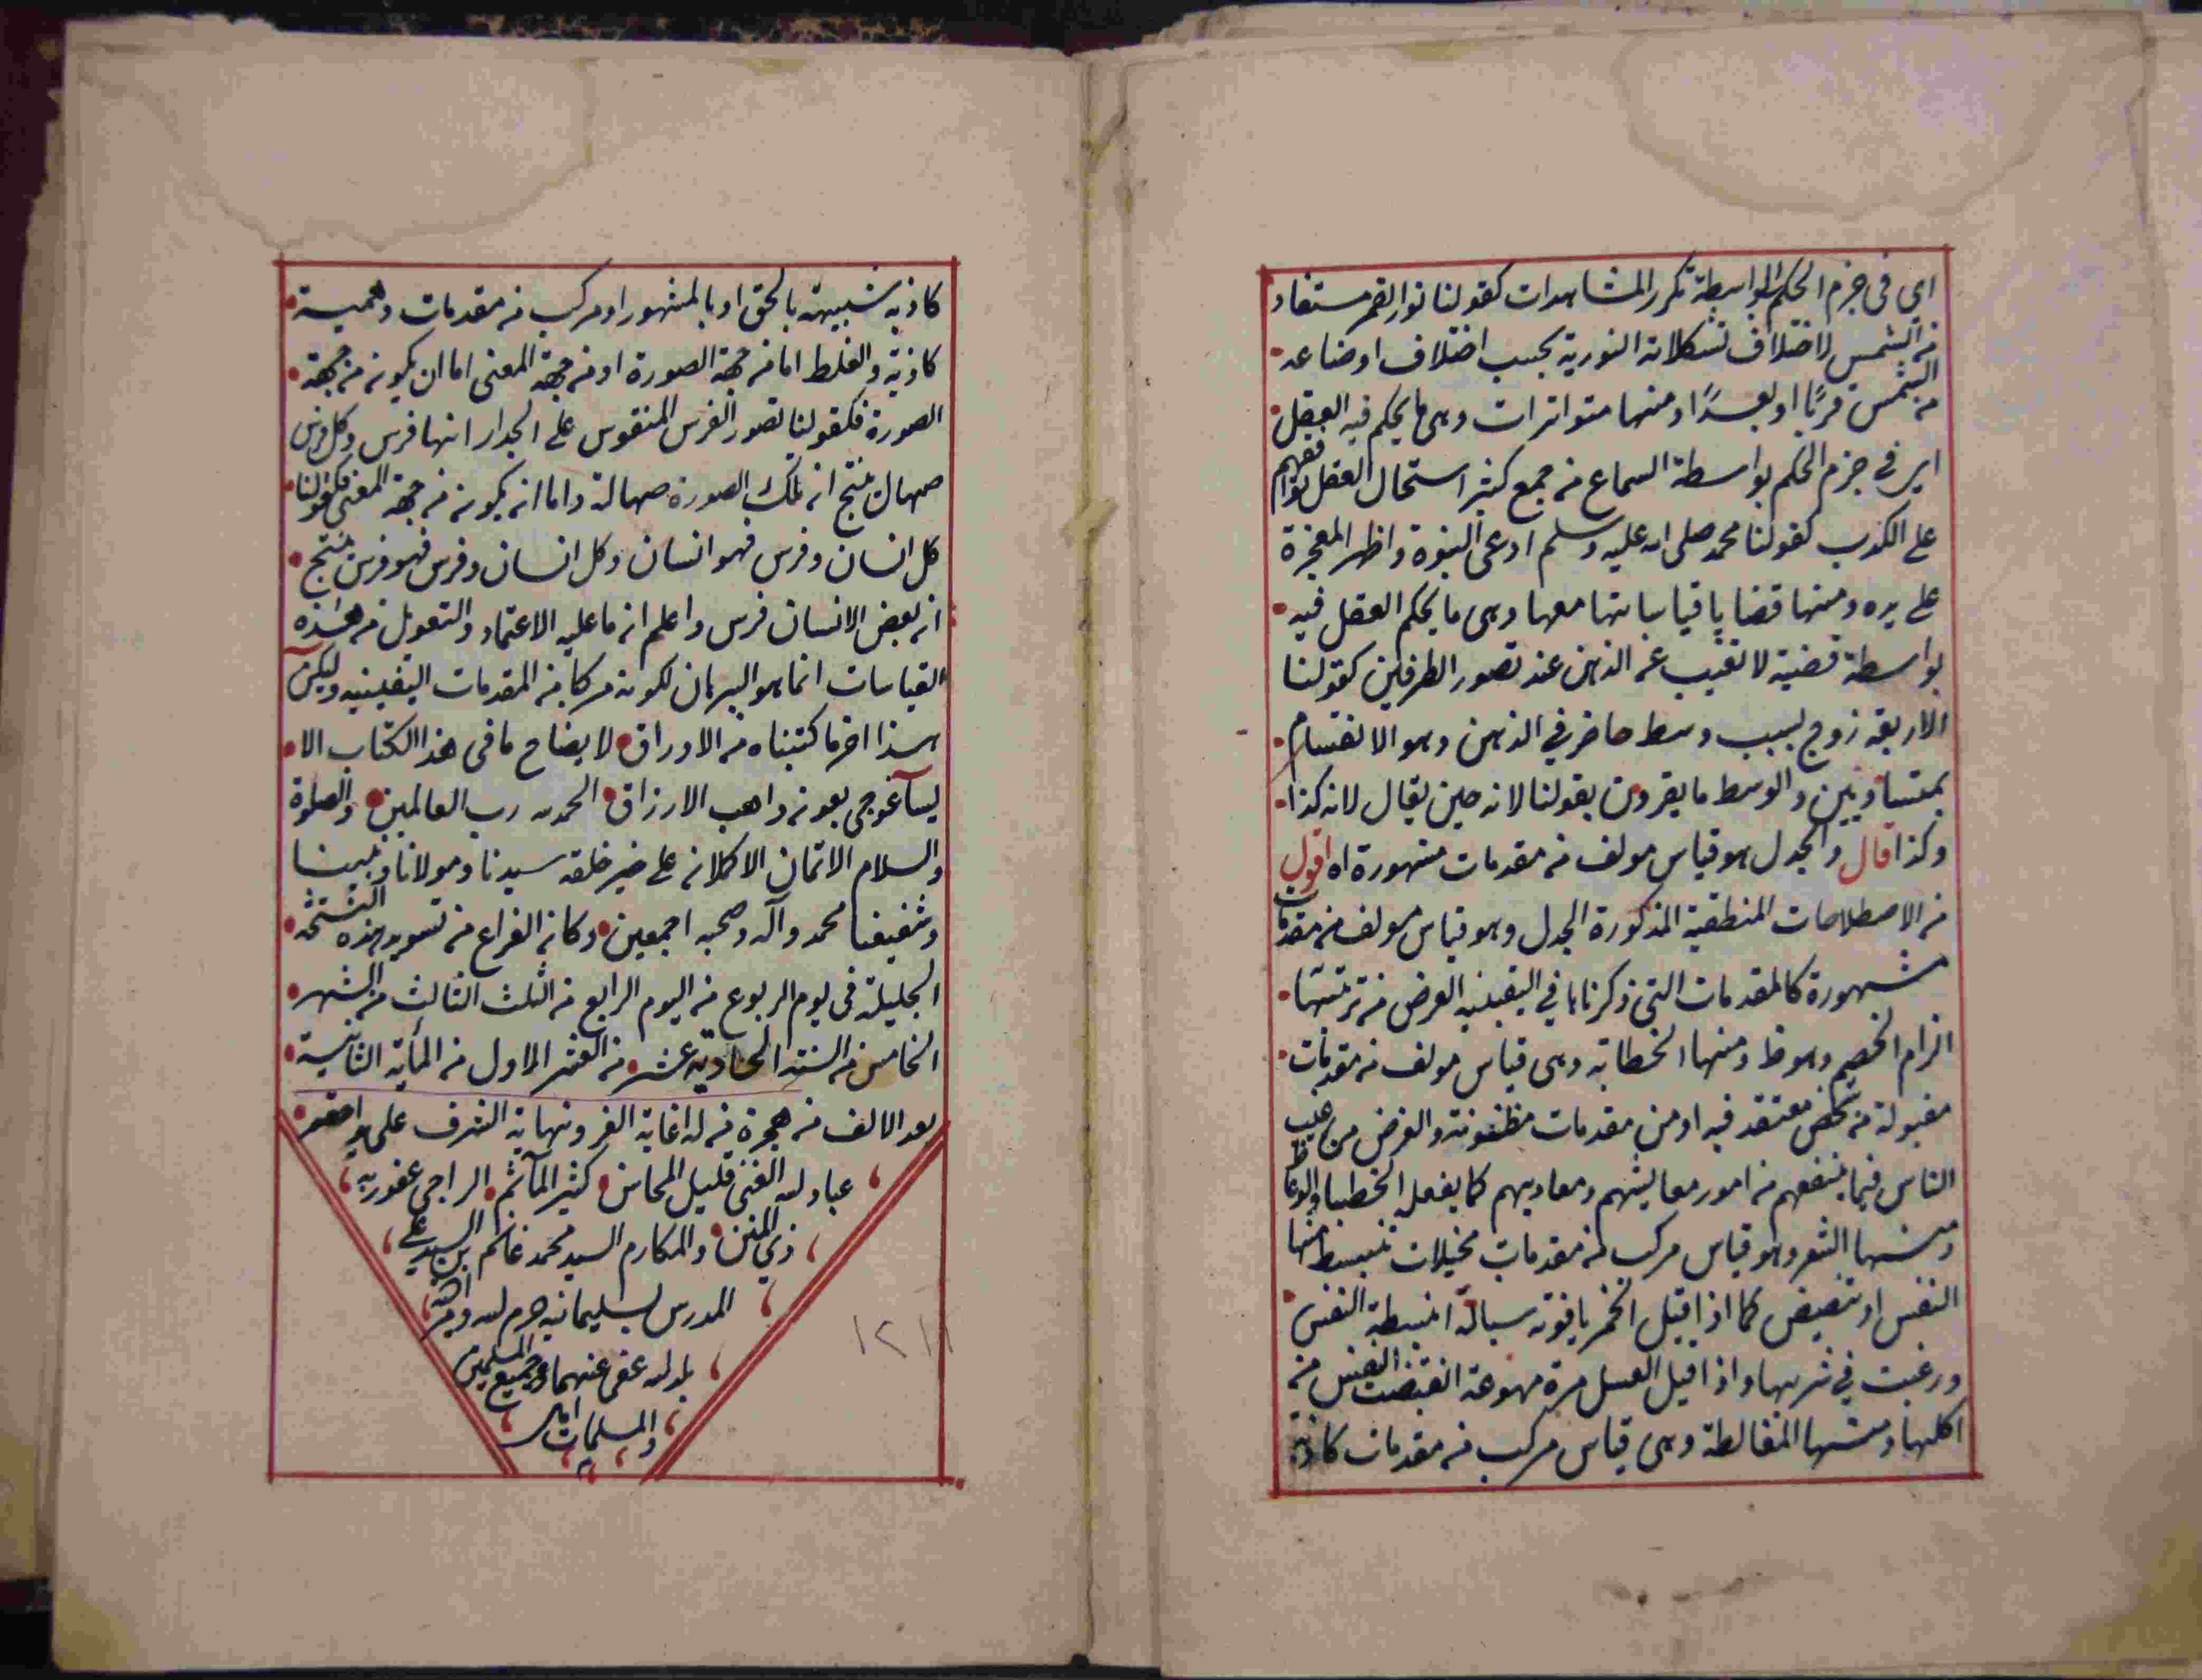 اى فى جزم الحكم الواسطة تكرر المشاهدات كقولنا نور القمر مستفاد
من الشمس لاختلاف تشكلاته النورية بحسب اختلاف اوضاعه
من الشمس قربًا او بعدًا ومنها متواترات وهى ما يحكم فيه العقل
اى فى جزم الحكم بواسطة السماع من جمع كثير استحال العقل توافقهم
على الكذب كقولنا محمد صلى الله عليه وسلم ادعى النبوة واظهر المعجزة
على يده ومنها قضايا قياساتها معها وهى ما يحكم العقل فيه
بواسطة قضية لا تغيب عن الذهن عند تصور الطرفين كقولنا
الاربعة زوج لسبب وسط حاضر في الذهن وهو الانقسام
بمتساويين والوسط ما يقرون بقولنا لانه حين يقال لانه كذا
وكذا قال والجدل هو قياس مولف من مقدمات مشهورة اه اقول
من الاصطلاحات المنطقية المذكورة الجدل وهو قياس مولف من مقدمات
مشهورة كالمقدمات التى ذكرناها في اليقينيه الغرض من ترتيبها
الزام الخصم وهو ظ ومنها الخطابة وهى قياس مولف من مقدمات
مقبولة من شخص معتقد فيه او من مقدمات مظنونة والغرض من
الناس فيما ينفعهم من امور معايشهم ومعاديهم كما يفعله الخطبا والوعاظ
ومنها الشعر وهو قياس مركب من مقدمات مخيلات تنبسط منها
النفس او تنقبض كما اذا قيل الخمر ياقوته سيالة انبسطة النفس
ورغبت في شربها واذا قيل العسل مرة مهوعة انقبضت النفس من
اكلها ومنها المغالطة وهى قياس مركب من مقدمات كاذبة
كاذبه شبيهة بالحق او بالمشهور او مركب من مقدمات وهمية
كاذبة والغلط اما من جهة الصورة او من جهة المعنى اما ان يكون من جهة
الصورة فكقولنا لصور الفرس المنقوس على الجدار انها فرس وكل فرس
صهال ينتج ان تلك الصورة صهالة واما ان يكون من جهة المعنى فكقولنا
كل انسان وفرس فهو انسان وكل انسان وفرس فهو فرس ينتج
ان بعض الانسان فرس واعلم ان ما عليه الاعتماد والتعويل من هذه
القياسات انما هو البرهان لكونه مركبا من المقدمات اليقينيه وليكن
هذا اخر ما كتبناه من الاوراق لايضاح ما فى هذا الكتاب الا
يساغوجى بعون واهب الارزاق الحمد لله رب العالمين والصلوة
والسلام الاتمان الاكملان على خير خلقه سيدنا ومولانا ونبينا
وشفيعنا محمد وآله وصحبه اجمعين وكان الفراغ من تسويد هذه النسخه
الجليلة فى يوم الربوع من اليوم الرابع من الثلث الثالث من الشهر
الخامس من السنته الحادية عشر من العشر الاول من المأية الثانية
بعد الالف من هجرة من له اغاية الفخر ونهاية الشرف على يد احقر
عباد الله الغنى قليل المحاسن كثير المآثم الراجى عفو ربه
ذي المنن والمكارم السيد محمد غانم بن السيد على
المدرس بسليمانيه حرم الله
بلد الله عفى عنهما وجميع المسلمين
والمسلمات امين
١٢١١